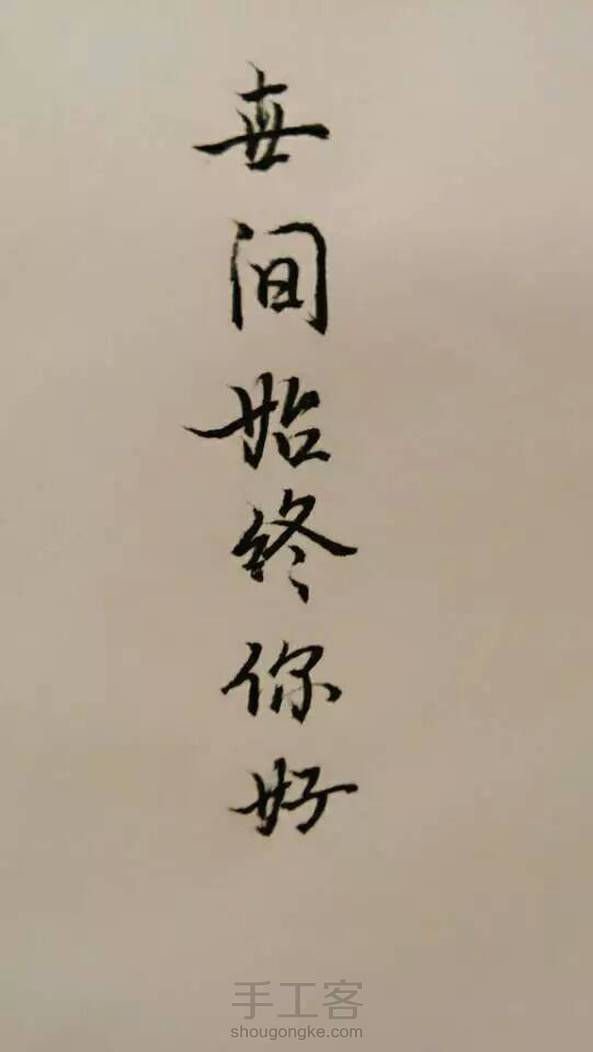 世间始终你好
手工客
shougongke.com